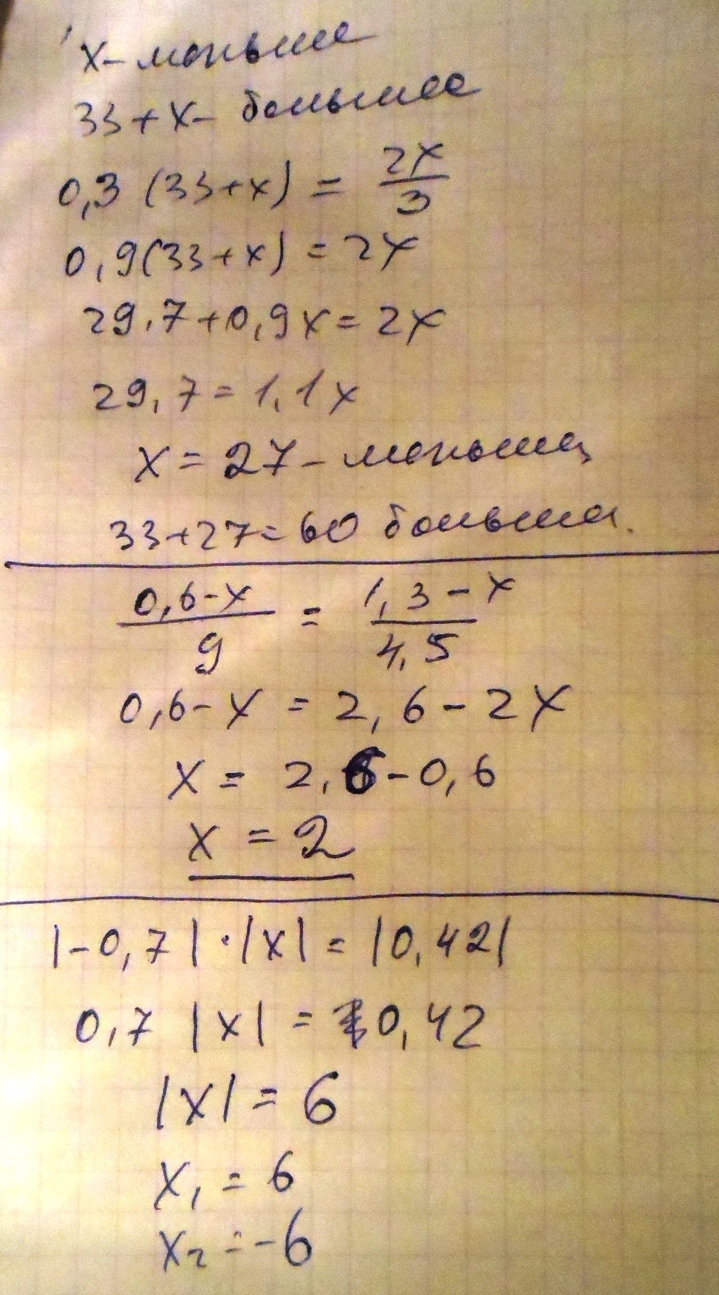 x - меньше
33+x - большее
0,3 (33+x) = 2x/3
0,9(33+x) = 2x
29,7+0,9x = 2x
29,7 = 1,1x
x = 27 - меньшая
33+27=60 большая.
0,6-x/9 = 1,3-x/4,5
0,6-x = 2,6-2x
x = 2,6-0,6
x = 2
|-0,7|·|x| = |0,42|
0,7 |x| = 0,42
|x| = 6
x₁ = 6
x₂ = -6